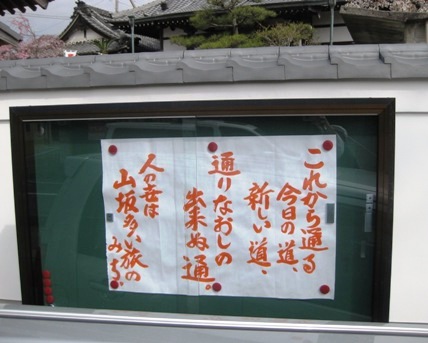 これから通る
今日の道、
新しい道、
通りなおしの
出来ぬ通。
人の世は
山坂多い旅の
みち。